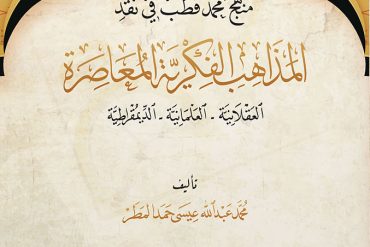 منهج محمد قطب في نقد
المذاهب الفكرية المعاصرة
العقلانية - العلمانية - الديمقراطية
تأليف
محمد عبدالله عيسى حمد المطر